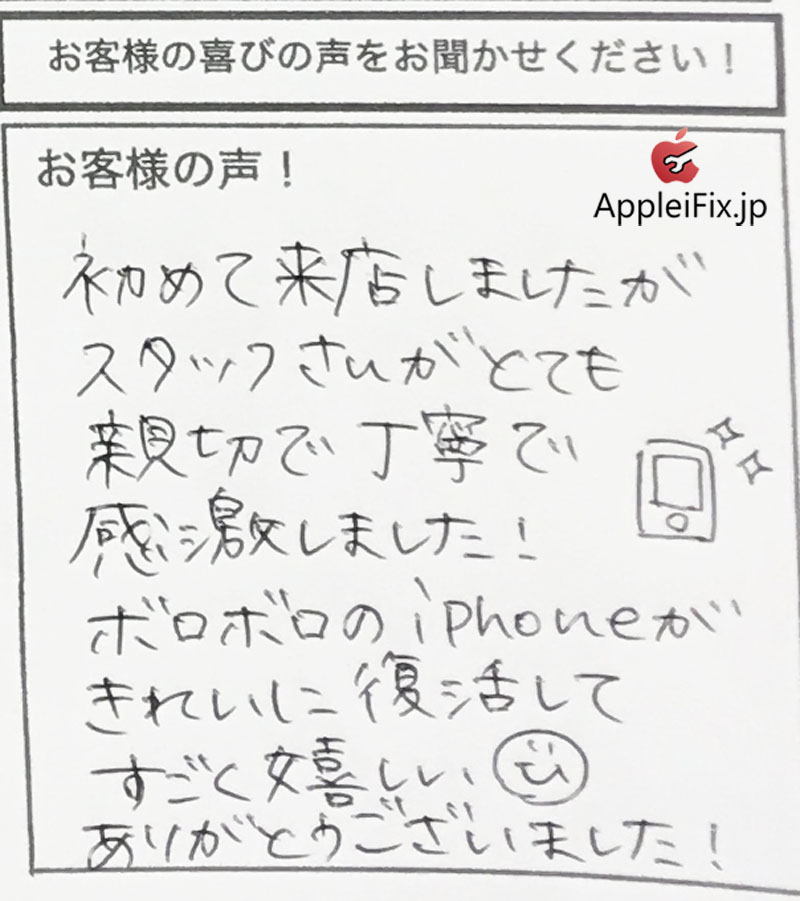 お客様の喜びの声をお聞かせください！
お客様の声！
AppleiFix.jp
初めて来店しましたが
スタッフさんがとても
親切で丁寧で
感激しました！
ボロボロのiPhoneが
きれいに復活して
すごく嬉しい
ありがとうございました！